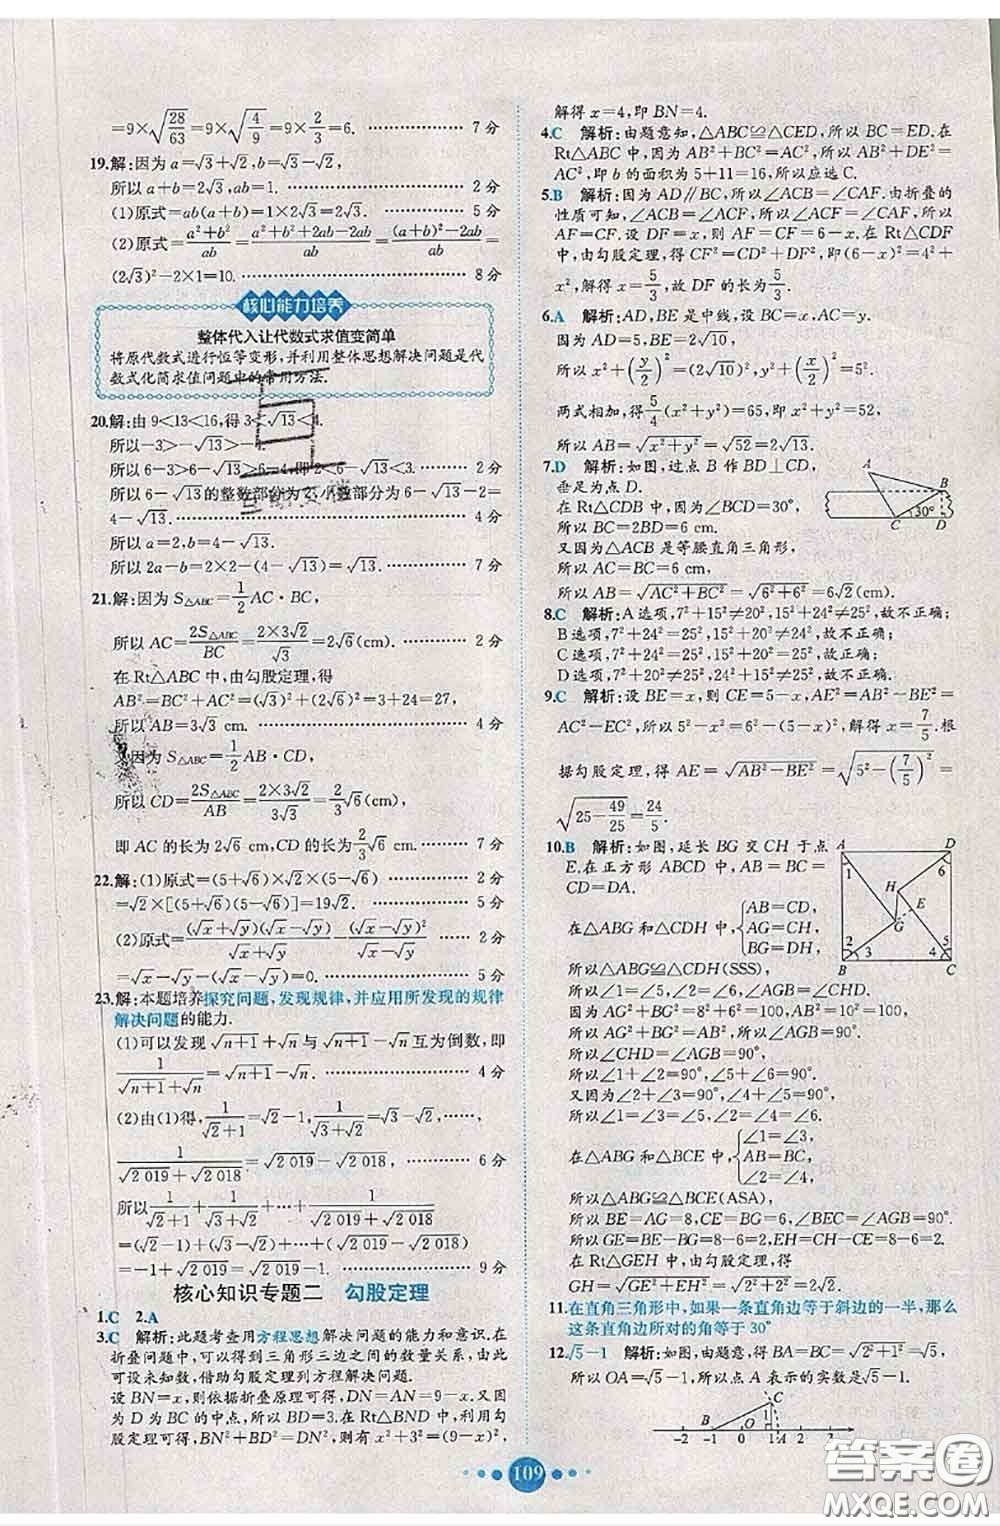 =9×√(28/63)=9×√(4/9)=9×2/3=6. ……………… 7 分
19.解:因为 a=√3+√2,b=√3-√2,
所以 a+b=2√3,ab=1. ……………… 2 分
(1)原式=ab(a+b)=1×2√3=2√3. ……… 5 分
(2)原式=(a²+b²)/ab=(a²+b²+2ab-2ab)/ab=((a+b)²-2ab)/ab=
(2√3)²-2×1=10. ……………… 8 分
核心能力培养
整体代入让代数式求值变简单
将原代数式进行恒等变形,并利用整体思想解决问题是代
数式化简求值问题中的常用方法.
20.解:由 9<13<16,得 3<√13<4.
所以-3>-√13>-4.
所以 6-3>6-√13>6-4,即 2<6-√13<3. ……… 2 分
所以 6-√13的整数部分为 2,小数部分为 6-√13-2=
4-√13. ……………… 4 分
所以 a=2,b=4-√13.
所以 2a-b=2×2-(4-√13)=√13. ……… 7 分
21.解:因为 S△ABC=1/2 AC·BC,
所以 AC=2S△ABC/BC=(2×3√2)/√3=2√6(cm). ……… 2 分
在 Rt△ABC 中,由勾股定理,得
AB²=BC²+AC²=(√3)²+(2√6)²=3+24=27,
所以 AB=3√3 cm. ……………… 4 分
因为 S△ABC=1/2 AB·CD,
所以 CD=2S△ABC/AB=(2×3√2)/(3√3)=2/3√6(cm),
即 AC 的长为 2√6 cm,CD 的长为 2/3√6 cm. ……… 7 分
22.解:(1)原式=(5+√6)×√2(5-√6) ……… 2 分
=√2×[(5+√6)(5-√6)]=19√2. ……… 5 分
(2)原式=(√x+√y)(√x-√y)/(√x+√y)-(√x-√y)²/(√x-√y) ……… 2 分
=√x-√y-(√x-√y)=0. ……… 5 分
23.解:本题培养探究问题,发现规律,并应用所发现的规律
解决问题的能力.
(1)可以发现√(n+1)+√n与√(n+1)-√n互为倒数,即
1/(√(n+1)+√n)=√(n+1)-√n. ……… 4 分
(2)由(1)得,1/(√2+1)=√2-1,1/(√3+√2)=√3-√2,……
1/(√2 019+√2 018)=√2 019-√2 018, ……… 6 分
所以1/(√2+1)+1/(√3+√2)+…+1/(√2 019+√2 018)
=(√2-1)+(√3-√2)+…+(√2 019-√2 018)
=-1+√2 019=√2 019-1. ……… 9 分
核心知识专题二 勾股定理
1.C 2.A
3.C 解析:此题考查用方程思想解决问题的能力和意识.在
折叠问题中,可以得到三角形三边之间的数量关系,由此
可设未知数,借助勾股定理列方程解决问题.
设 BN=x,则依据折叠原理可得,DN=AN=9-x.又因
为 D 为 BC 的中点,所以 BD=3.在 Rt△BND 中,利用勾
股定理可得,BN²+BD²=DN²,则有 x²+3²=(9-x)²,
解得 x=4,即 BN=4.
4.C 解析:由题意知,△ABC≌△CED,所以 BC=ED.在
Rt△ABC 中,因为 AB²+BC²=AC²,所以 AB²+DE²=
AC²,即 b 的面积为 5+11=16,所以应选 C.
5.B 解析:因为 AD∥BC,所以∠ACB=∠CAF.由折叠的
性质可知,∠ACB=∠ACF,所以∠ACF=∠CAF,所以
AF=CF.设 DF=x,则 AF=CF=6-x,在 Rt△CDF
中,由勾股定理,得 CF²=CD²+DF²,即(6-x)²=4²+
x²,解得 x=5/3,故 DF 的长为5/3.
6.A 解析:AD,BE 是中线,设 BC=x,AC=y.
因为 AD=5,BE=2√10,
所以 x²+(y/2)²=(2√10)²,y²+(x/2)²=5²,
两式相加,得5/4(x²+y²)=65,即 x²+y²=52,
所以 AB=√(x²+y²)=√52=2√13.
7.D 解析:如图,过点 B 作 BD⊥CD,
垂足为点 D.
在 Rt△CDB 中,因为∠BCD=30°,
所以 BC=2BD=6 cm.
又因为△ACB 是等腰直角三角形,
所以 AC=BC=6 cm,
所以 AB=√(AC²+BC²)=√(6²+6²)=6√2(cm).
A B C D 30°
8.C 解析:A 选项,7²+15²≠20²,15²+24²≠25²,故不正确;
B 选项,7²+24²=25²,15²+20²≠24²,故不正确;
C 选项,7²+24²=25²,15²+20²=25²,故正确;
D 选项,7²+20²≠25²,24²+15²≠25²,故不正确.
9.C 解析:设 BE=x,则 CE=5-x,AE²=AB²-BE²=
AC²-EC²,所以 5²-x²=6²-(5-x)²,解得 x=7/5.根
据勾股定理,得 AE=√(AB²-BE²)=√(5²-(7/5)²)=
√(25-49/25)=24/5.
10.B 解析:如图,延长 BG 交 CH 于点
E,在正方形 ABCD 中,AB=BC=
CD=DA.
在△ABG 和△CDH 中,{AB=CD,
AG=CH,
BG=DH,
所以△ABG≌△CDH(SSS),
所以∠1=∠5,∠2=∠6,∠AGB=∠CHD.
因为 AG²+BG²=8²+6²=100,AB²=10²=100,
所以 AG²+BG²=AB²,所以∠AGB=90°.
所以∠CHD=∠AGB=90°.
所以∠1+∠2=90°,∠5+∠6=90°.
又因为∠2+∠3=90°,∠4+∠5=90°,
所以∠1=∠3=∠5,∠2=∠4=∠6,
在△ABG 和△BCE 中,{∠1=∠3,
AB=BC,
∠2=∠4,
所以△ABG≌△BCE(ASA),
所以 BE=AG=8,CE=BG=6,∠BEC=∠AGB=90°.
所以 GE=BE-BG=8-6=2,EH=CH-CE=8-6=2.
在 Rt△GEH 中,由勾股定理,得
GH=√(GE²+EH²)=√(2²+2²)=2√2.
A D 1 6 H E G 2 3 4 5 B C
11.在直角三角形中,如果一条直角边等于斜边的一半,那么
这条直角边所对的角等于 30°
12.√5-1 解析:如图,由题意,得 BA=BC=√(2²+1²)=√5,
所以 OA=√5-1,所以点 A 表示的实数是√5-1.
C B O A 1 -2 -1 0 1 2 3 4
109
答案圈
MXQE.COM